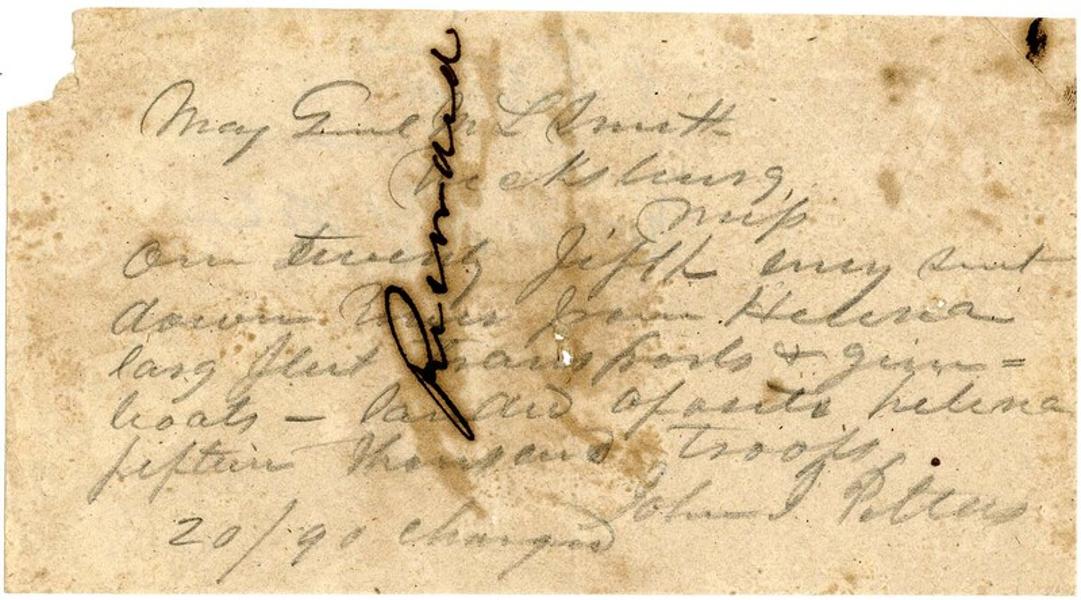 May Genl M L Smith
Vicksburg,
Misp
On twenty fifth enmy sent
down River from Helena
larg fleet transports & gun=
boats - landed oposite helena
fiftein thousand troops
John J Pettus
20/90 charged
Remand